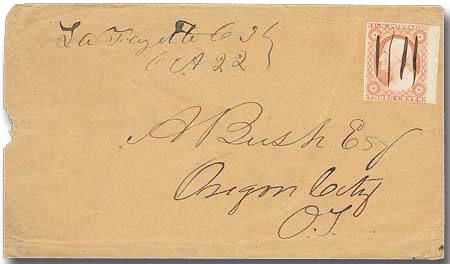 La Fayette O T
Oct 22
U.S. POSTAGE
THREE CENTS
A Bush Esq
Oregon City
O.T.